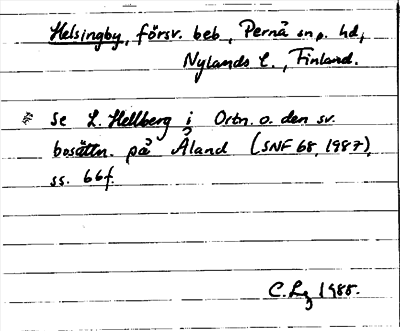 Helsingby, försv. beb., Pernå snp. hd,
Nylands l., Finland.
Se L. Hellberg i Ortn. o. den sv.
bosättn. på Åland (SNF 68, 1987),
ss. 66f.
C. Lg 1988.